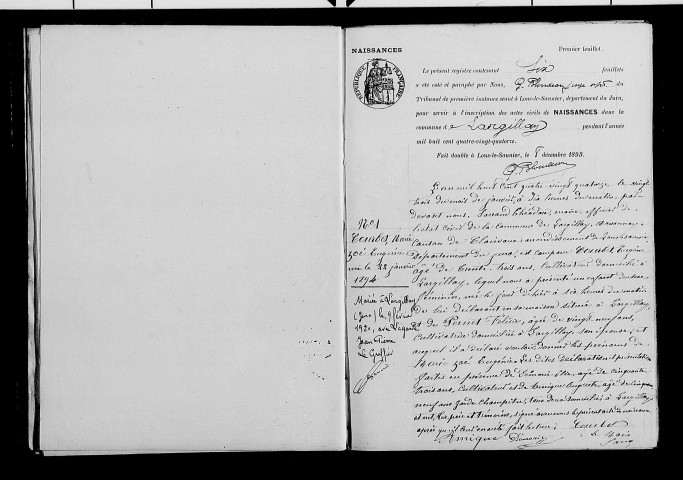 NAISSANCES
Premier feuillet.
RÉPUBLIQUE FRANÇAISE
Le présent registre contenant Six feuillets
a été coté et paraphé par Nous, juge du
Tribunal de première instance séant à Lons-le-Saunier, département du Jura,
pour servir à l'inscription des actes civils de NAISSANCES dans la
commune de Largillay pendant l'année
mil huit cent quatre-vingt-quatorze.
Fait double à Lons-le-Saunier, le 8 décembre 1893.
L'an mil huit cent quatre vingt quatorze le vingt
trois du mois de janvier, à dix heures du matin, par
devant nous, maire, officier de
l'état civil de la commune de Largillay
canton de Clairvaux arrondissement de Lons-le-Saunier,
département du Jura, est comparu Tourbet Eugène
âgé de trente trois ans, cultivateur domicilié à
Largillay, lequel nous a présenté un enfant du sexe
féminin, né le jour d'hier à six heures du matin
de lui déclarant en sa maison située à Largillay
et de Pernet Félicie, âgée de vingt neuf ans,
cultivatrice domiciliée à Largillay, son épouse, et
auquel il a déclaré vouloir donner les prénoms de
Marie Zoé Eugénie. Les dites déclaration et présentation
faites en présence de âgé de cinquante
trois ans, cultivateur et de Auguste, âgé de cinquante
neuf ans garde champêtre, tous deux domiciliés à Largillay
et ont, les père et témoins, signé avec nous le présent acte de naissance
après qu'il leur en a été fait lecture.
Tourbet
Le Maire
No 1
Tourbet, Marie
Zoé Eugénie
née le 22 janvier
1894
Mariée à Largillay
(Jura) le 9 février
1920, avec
Jean Pierre
Le Greffier